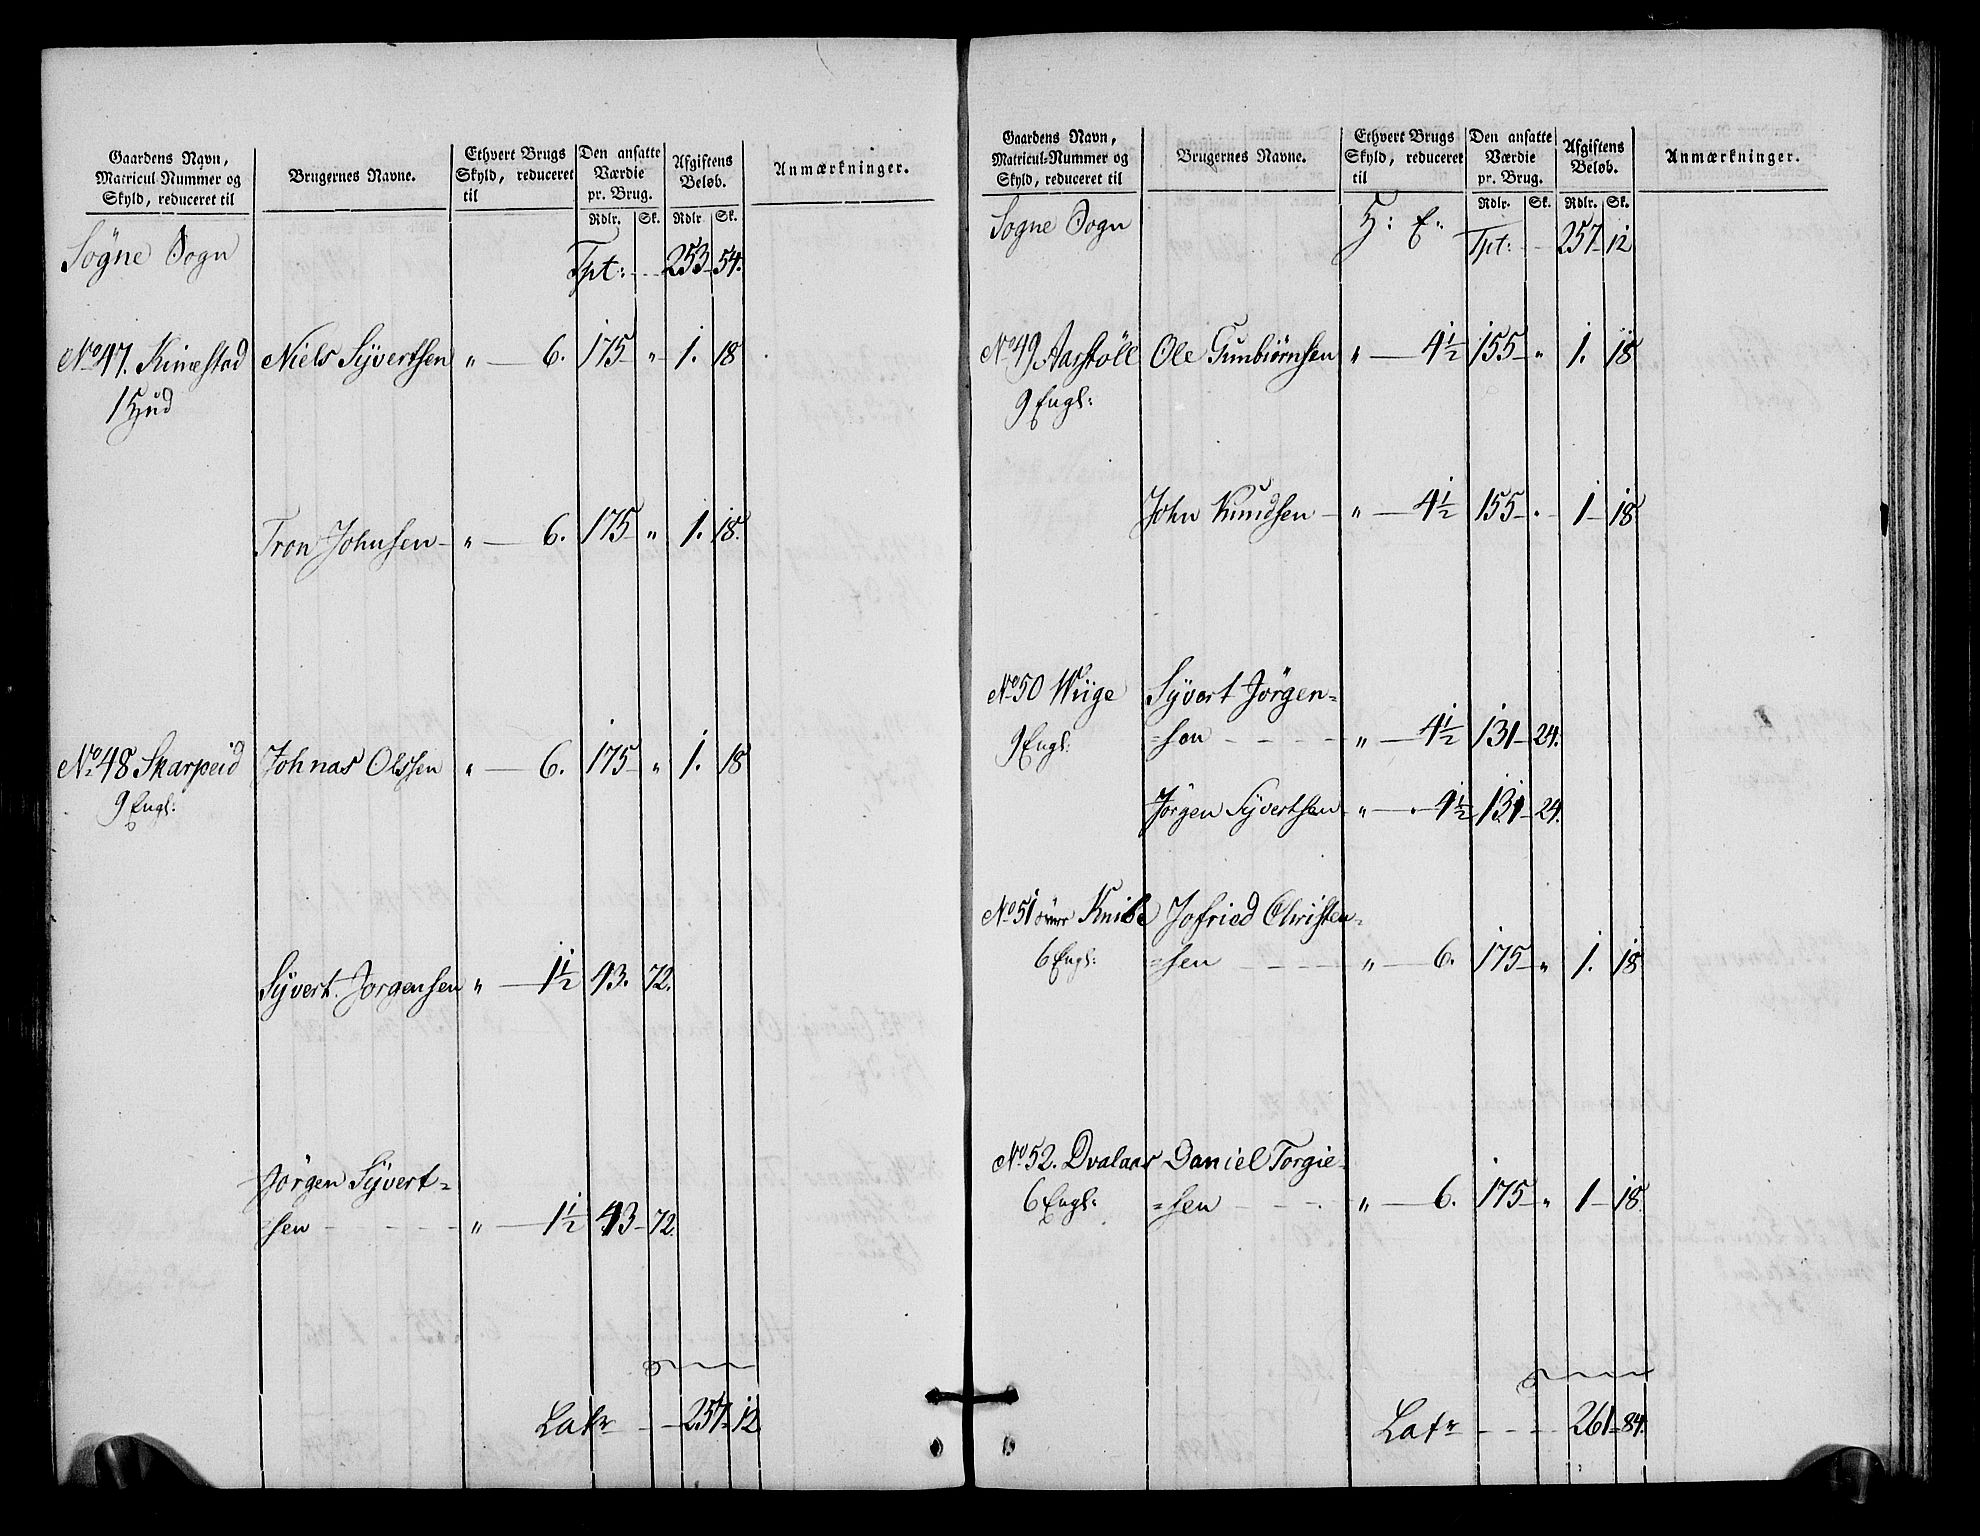 Gaardens Navn, Matricul-Nummer og Skyld, reduceret til | Brugernes Navne. | Ethvert Brugs Skyld, reduceret til | Den ansatte Værdie pr. Brug. Rdlr. Sk. | Afgiftens Beløb. Rdlr. Sk. | Anmærkninger.
Sögne Sogn Tpt: 253 54.
No 47. Kinestad Niels Syvertsen " 6. 175 " 1. 18
1 Hud
Tron Johnsen " 6. 175 " 1. 18.
No 48 Skarpeid Johnas Olssen " 6. 175 " 1. 18
9 Engl:
Syvert Jorgensen " 1½ 43. 72.
Jörgen Syvert=
=sen " 1½ 43 72.
Latr 257 12
Gaardens Navn, Matricul-Nummer og Skyld, reduceret til | Brugernes Navne. | Ethvert Brugs Skyld, reduceret til | Den ansatte Værdie pr. Brug. Rdlr. Sk. | Afgiftens Beløb. Rdlr. Sk. | Anmærkninger.
Sogne Sogn H: E: Tpt: 257 12
No 49 Aarstöll Ole Gunbiørnsen " 4½ 155 " 1. 18
9 Engl:
John Knudsen " 4½ 155 1 18
No 50 Wiige Syvert Jörgen=
9 Engl: =sen " 4½ 131 24.
Jörgen Syvertsen " 4½ 131 24.
No 51 Knibe Jofried Christen=
6 Engl: =sen " 6. 175 " 1. 18
No 52. Dvalaas Daniel Torgie=
6 Engl: =sen " 6. 175 " 1 18.
Latr 261 84.